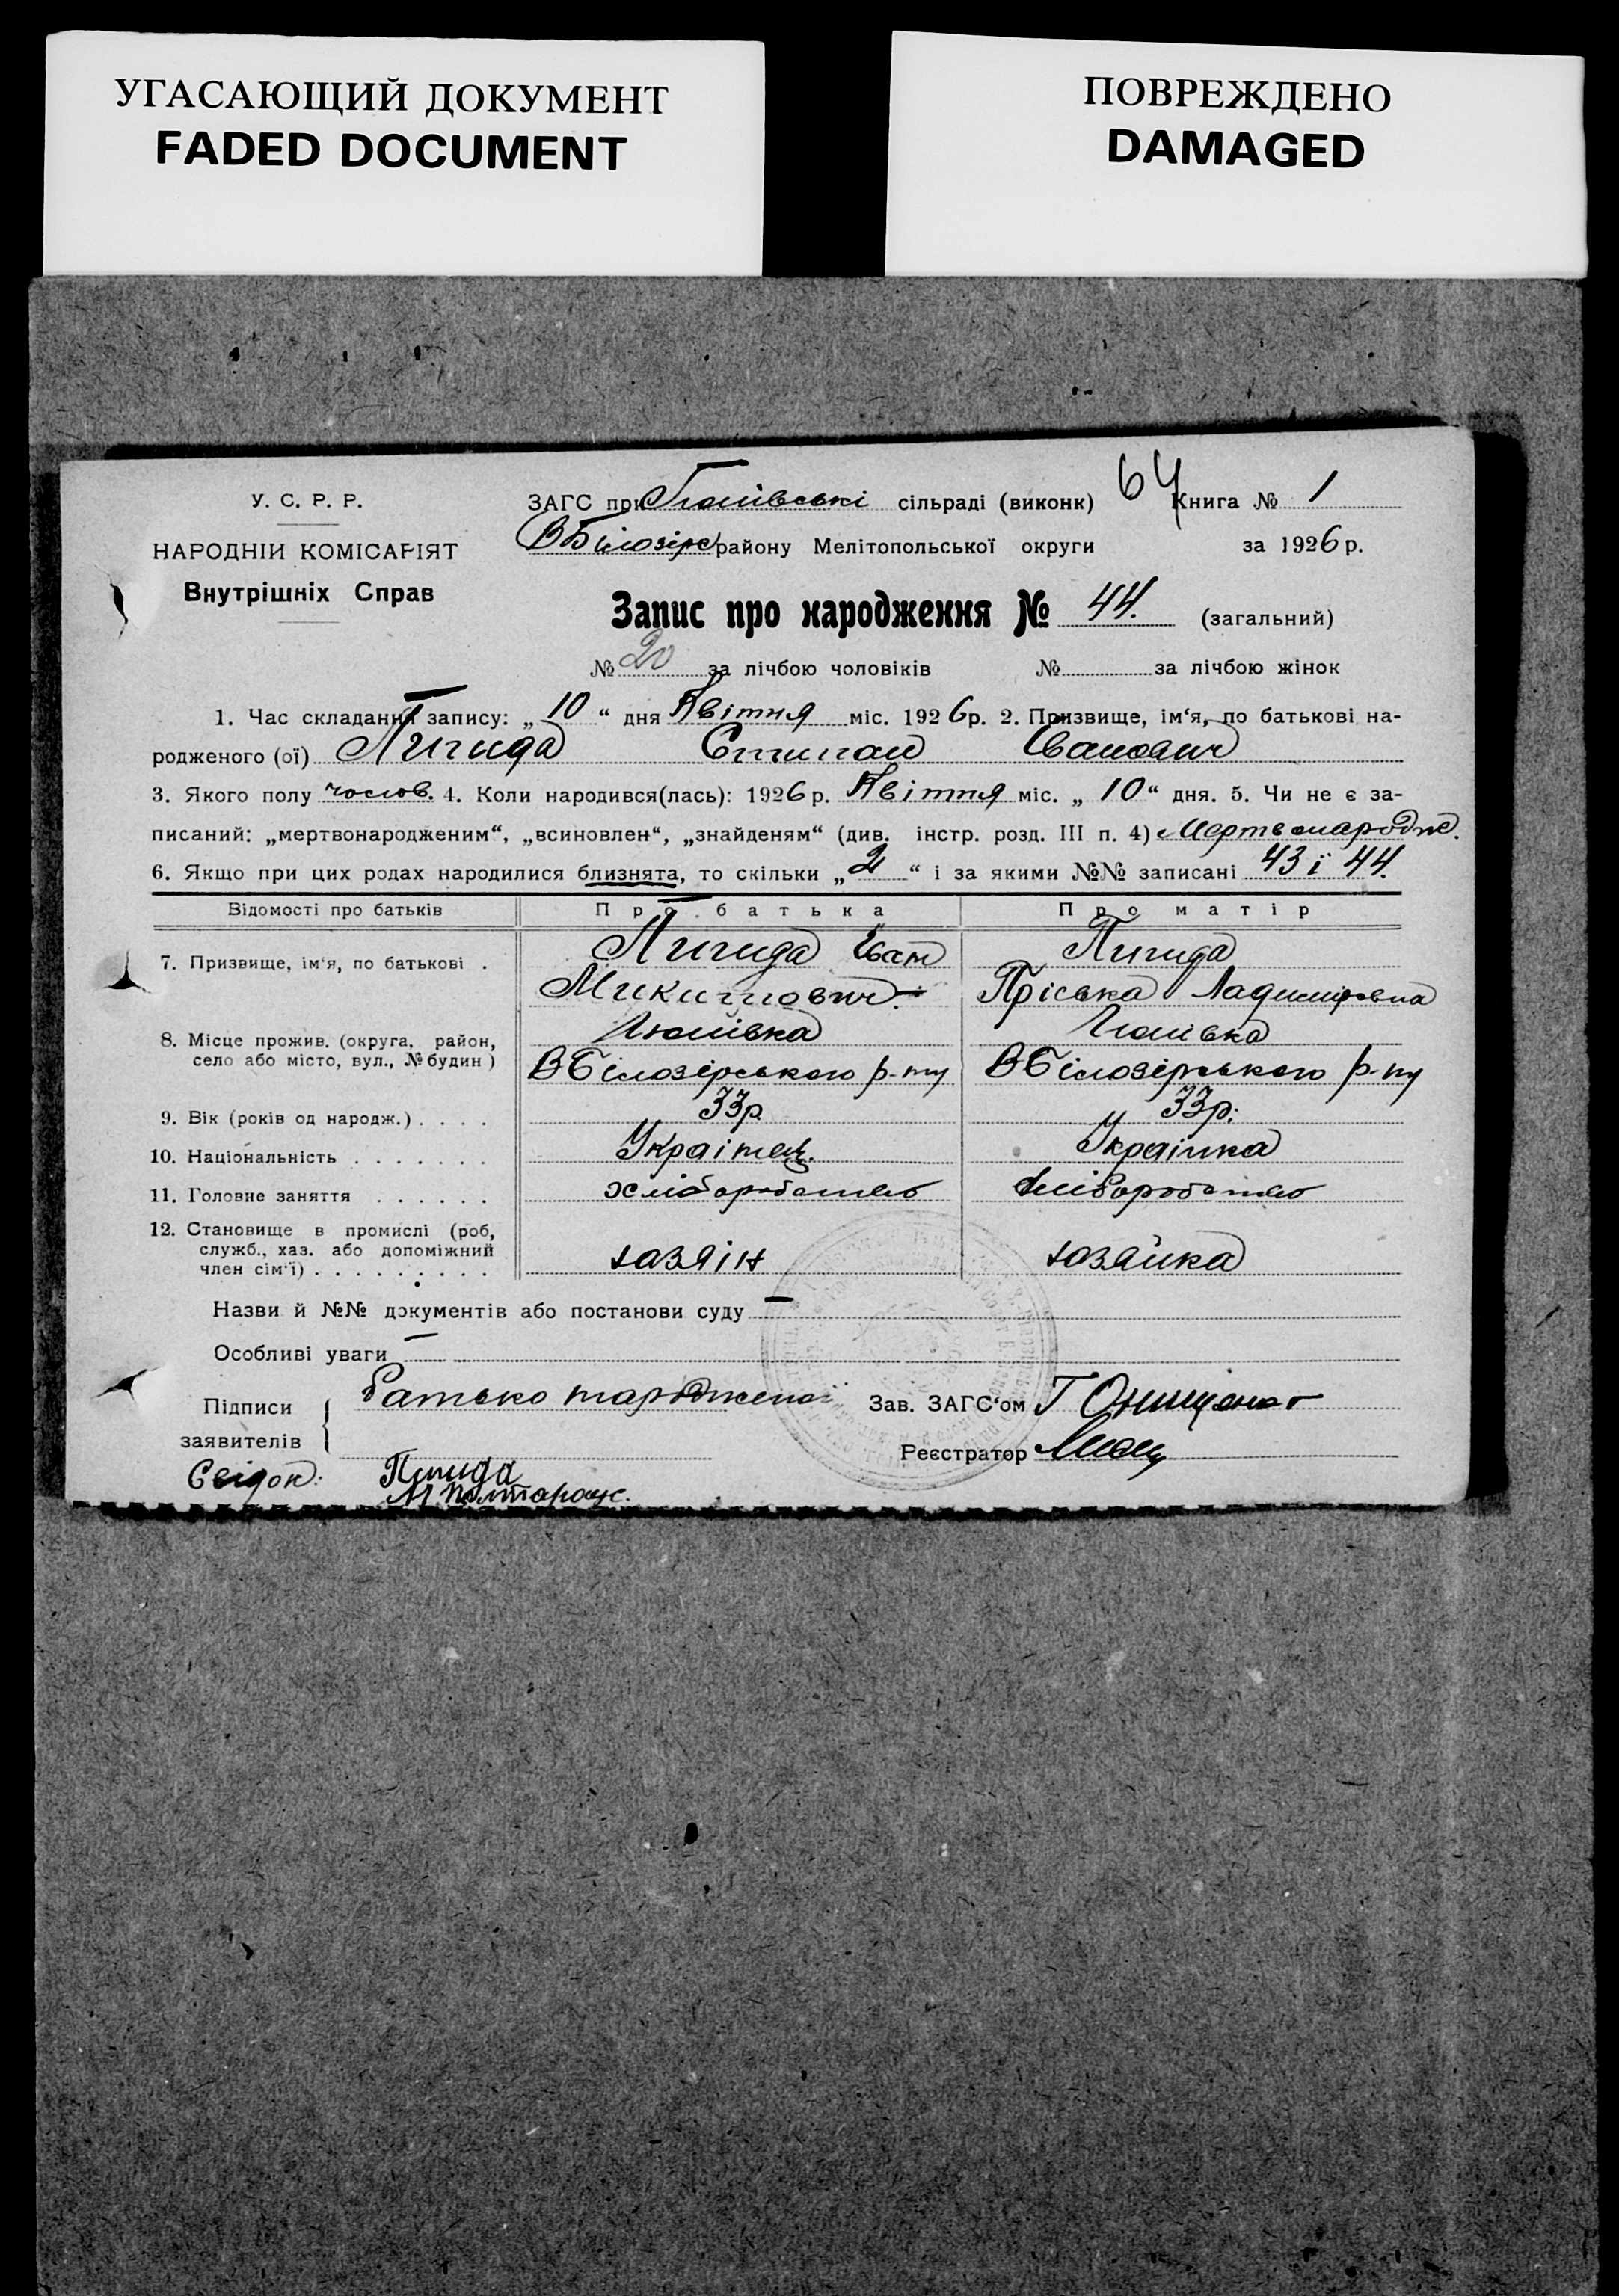 УГАСАЮЩИЙ ДОКУМЕНТ
FADED DOCUMENT
ПОВРЕЖДЕНО
DAMAGED
У. С. Р. Р.
НАРОДНІЙ КОМІСАРІЯТ
Внутрішніх Справ
ЗАГС при сільраді (виконк)
64
Книга № 1
ВБілозірс району Мелітопольської округи
за 1926 р.
Запис про народження № 44. (загальний)
№ 20 за лічбою чоловіків № за лічбою жінок
1. Час складання запису: „10“ дня Квітня міс. 1926 р. 2. Призвище, ім‘я, по батькові на-
родженого (ої) Пигида Степан Іванович
3. Якого полу чолов. 4. Коли народився(лась): 1926 р. Квітня міс. „10“ дня. 5. Чи не є за-
писаний: „мертвонародженим“, „всиновлен“, „знайденям“ (див. інстр. розд. III п. 4) Мертвонародже.
6. Якщо при цих родах народилися близнята, то скільки „2“ і за якими №№ записані 43 і 44.
Відомості про батьків
Про батька
Про матір
7. Призвище, ім‘я, по батькові .
Пигида Іван
Микитович
Пигида
Пріська Ладимировна
8. Місце прожив. (округа, район,
село або місто, вул., № будин )
Гюнівка
ВБілозірського р-ну
Гюнівка
ВБілозірського р-ну
9. Вік (років од народж.) . . . .
33р.
33р.
10. Національність . . . . . . .
Українец.
Українка
11. Головне заняття . . . . . .
хліборобство
хліборобство
12. Становище в промислі (роб,
служб., хаз. або допоміжний
член сім‘ї) . . . . . . . . .
хазяін
хозяйка
Назви й №№ документів або постанови суду —
Особливі уваги —
Підписи
заявителів
Батько народженої
Зав. ЗАГС‘ом Г Онищенко
Реєстратор
Свідок:
Пигида